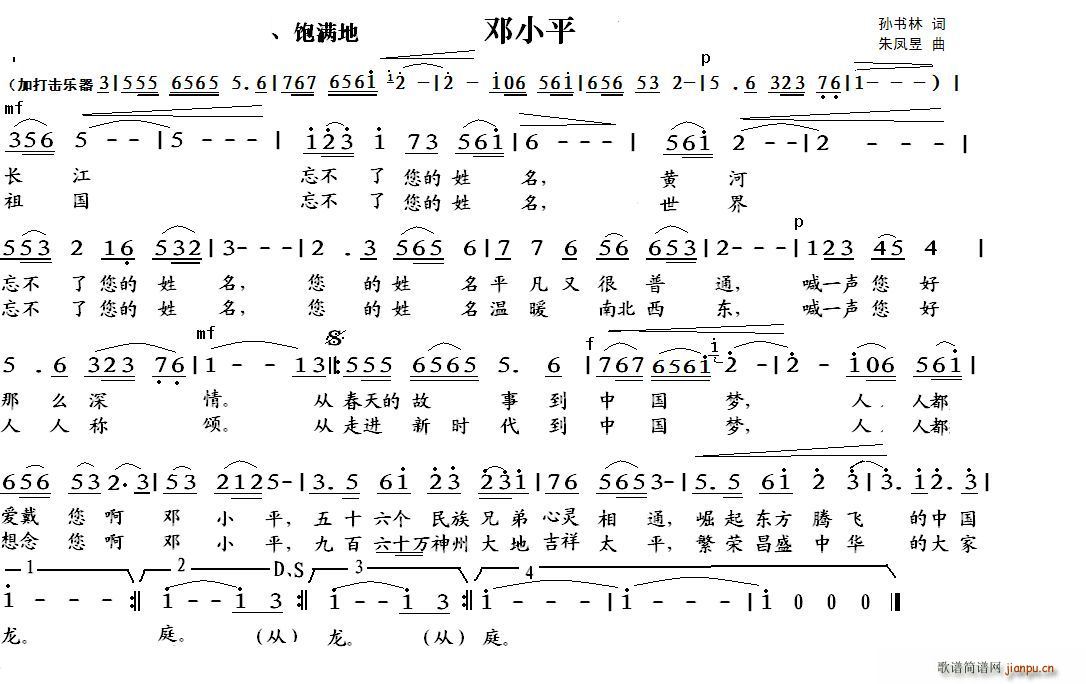 、饱满地 邓小平 孙书林 词
朱凤昱 曲
p
（加打击乐器 3|555 6565 5.6|767 6561 12-|2- 106 561|656 53 2-|5.6 323 76|1---）|
mf
356 5--|5--- |123 1 73 561|6---| 561 2--|2---|
长 江 忘不 了 您的 姓 名， 黄 河
祖 国 忘不 了 您的 姓 名， 世 界
p
553 2 16 532|3---|2 .3 565 6|7 7 6 56 653|2---|123 45 4 |
忘不 了 您的 姓 名， 您 的 姓 名 平 凡 又 很 普 通， 喊一声 您 好
忘不 了 您的 姓 名， 您 的 姓 名 温 暖 南北 西 东， 喊一声 您 好
mf f
5 .6 323 76|1--13|:555 6565 5. 6|767 6561 12-|2- 106 561|
那 么 深 情。 从 春天的 故 事 到 中 国 梦， 人 . 人都
人 人 称 颂。 从 走进 新 时 代 到 中 国 梦， 人 . 人都
656 53 2.3|53 2125-|3.5 61 23 231|76 5653-|5.5 61 2 3|3.12.3|
爱戴 您 啊 邓 小 平， 五 十 六个 民族 兄 弟 心灵 相 通， 崛起 东方 腾 飞 的中国
想念 您 啊 邓 小 平， 九 百 六十万 神州 大 地 吉祥 太 平， 繁荣 昌盛 中 华 的大家
1 2 D、S 3 4
1---:||1--1 3:||1--1 3:||1---|1---|1 0 0 0||
龙。 庭。 （从） 龙。 （从） 庭。
歌谱简谱网 jianpu.cn